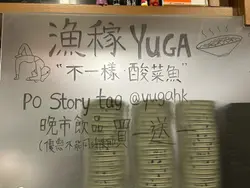 漁稼 YUGA
"不一樣 酸菜魚"
PO Story tag @yugahk
晚市飲品 買一送一